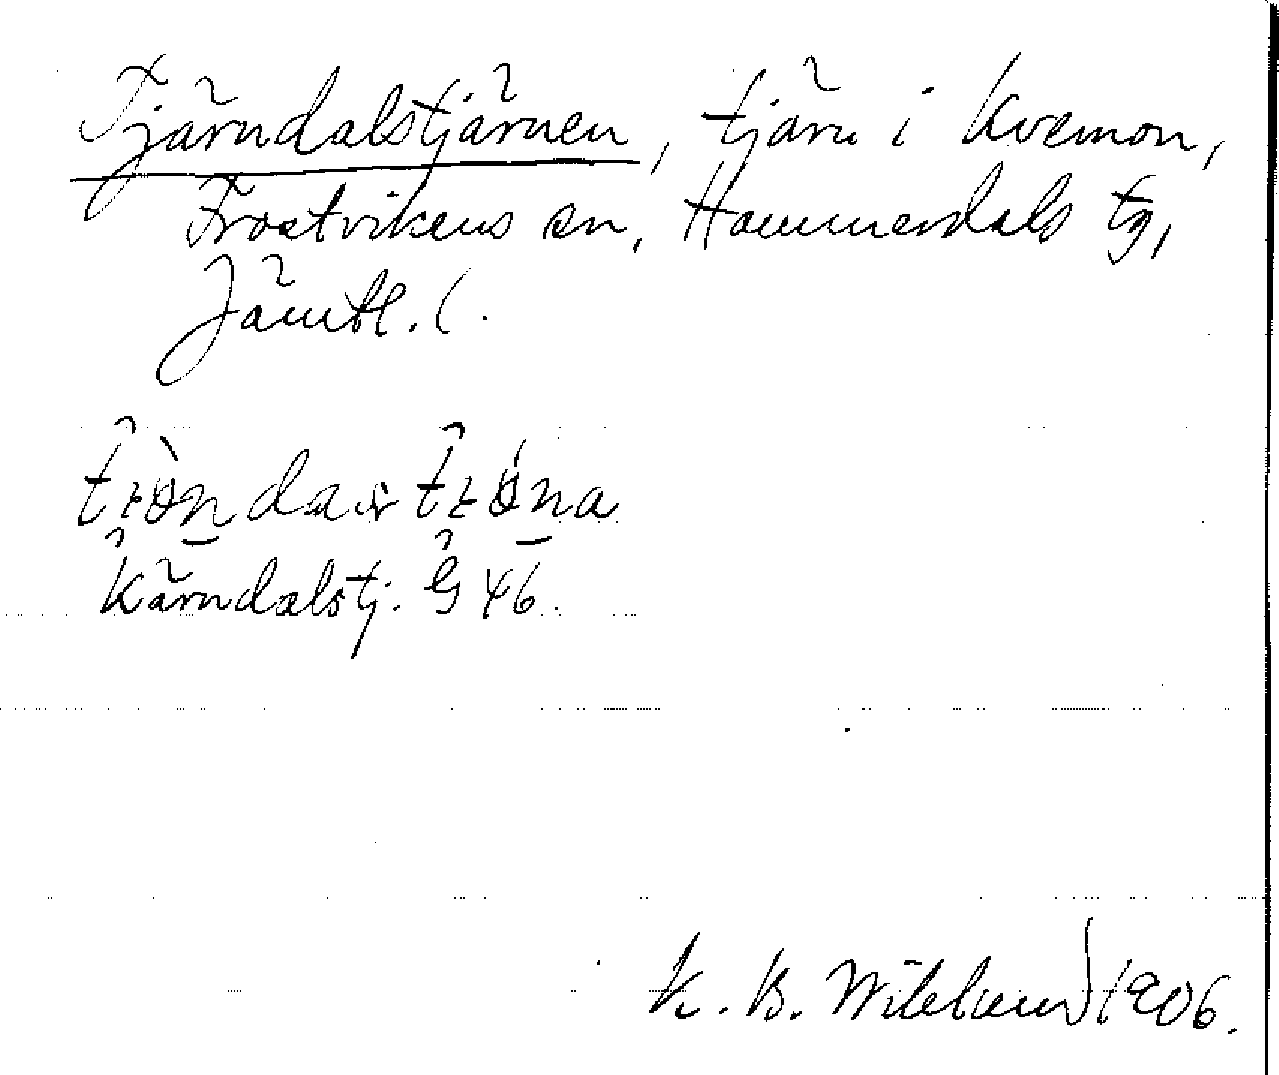 Tjärndalstjärnen, tjärn i Kvemon,
Frostvikens sn, Hammerdals tg,
Jämtl. l.
Kärndalstj. G 46.
K. B. Wiklund 1906.